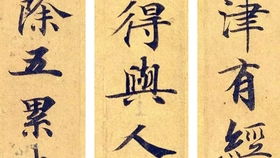 津有經
得與人
除五累